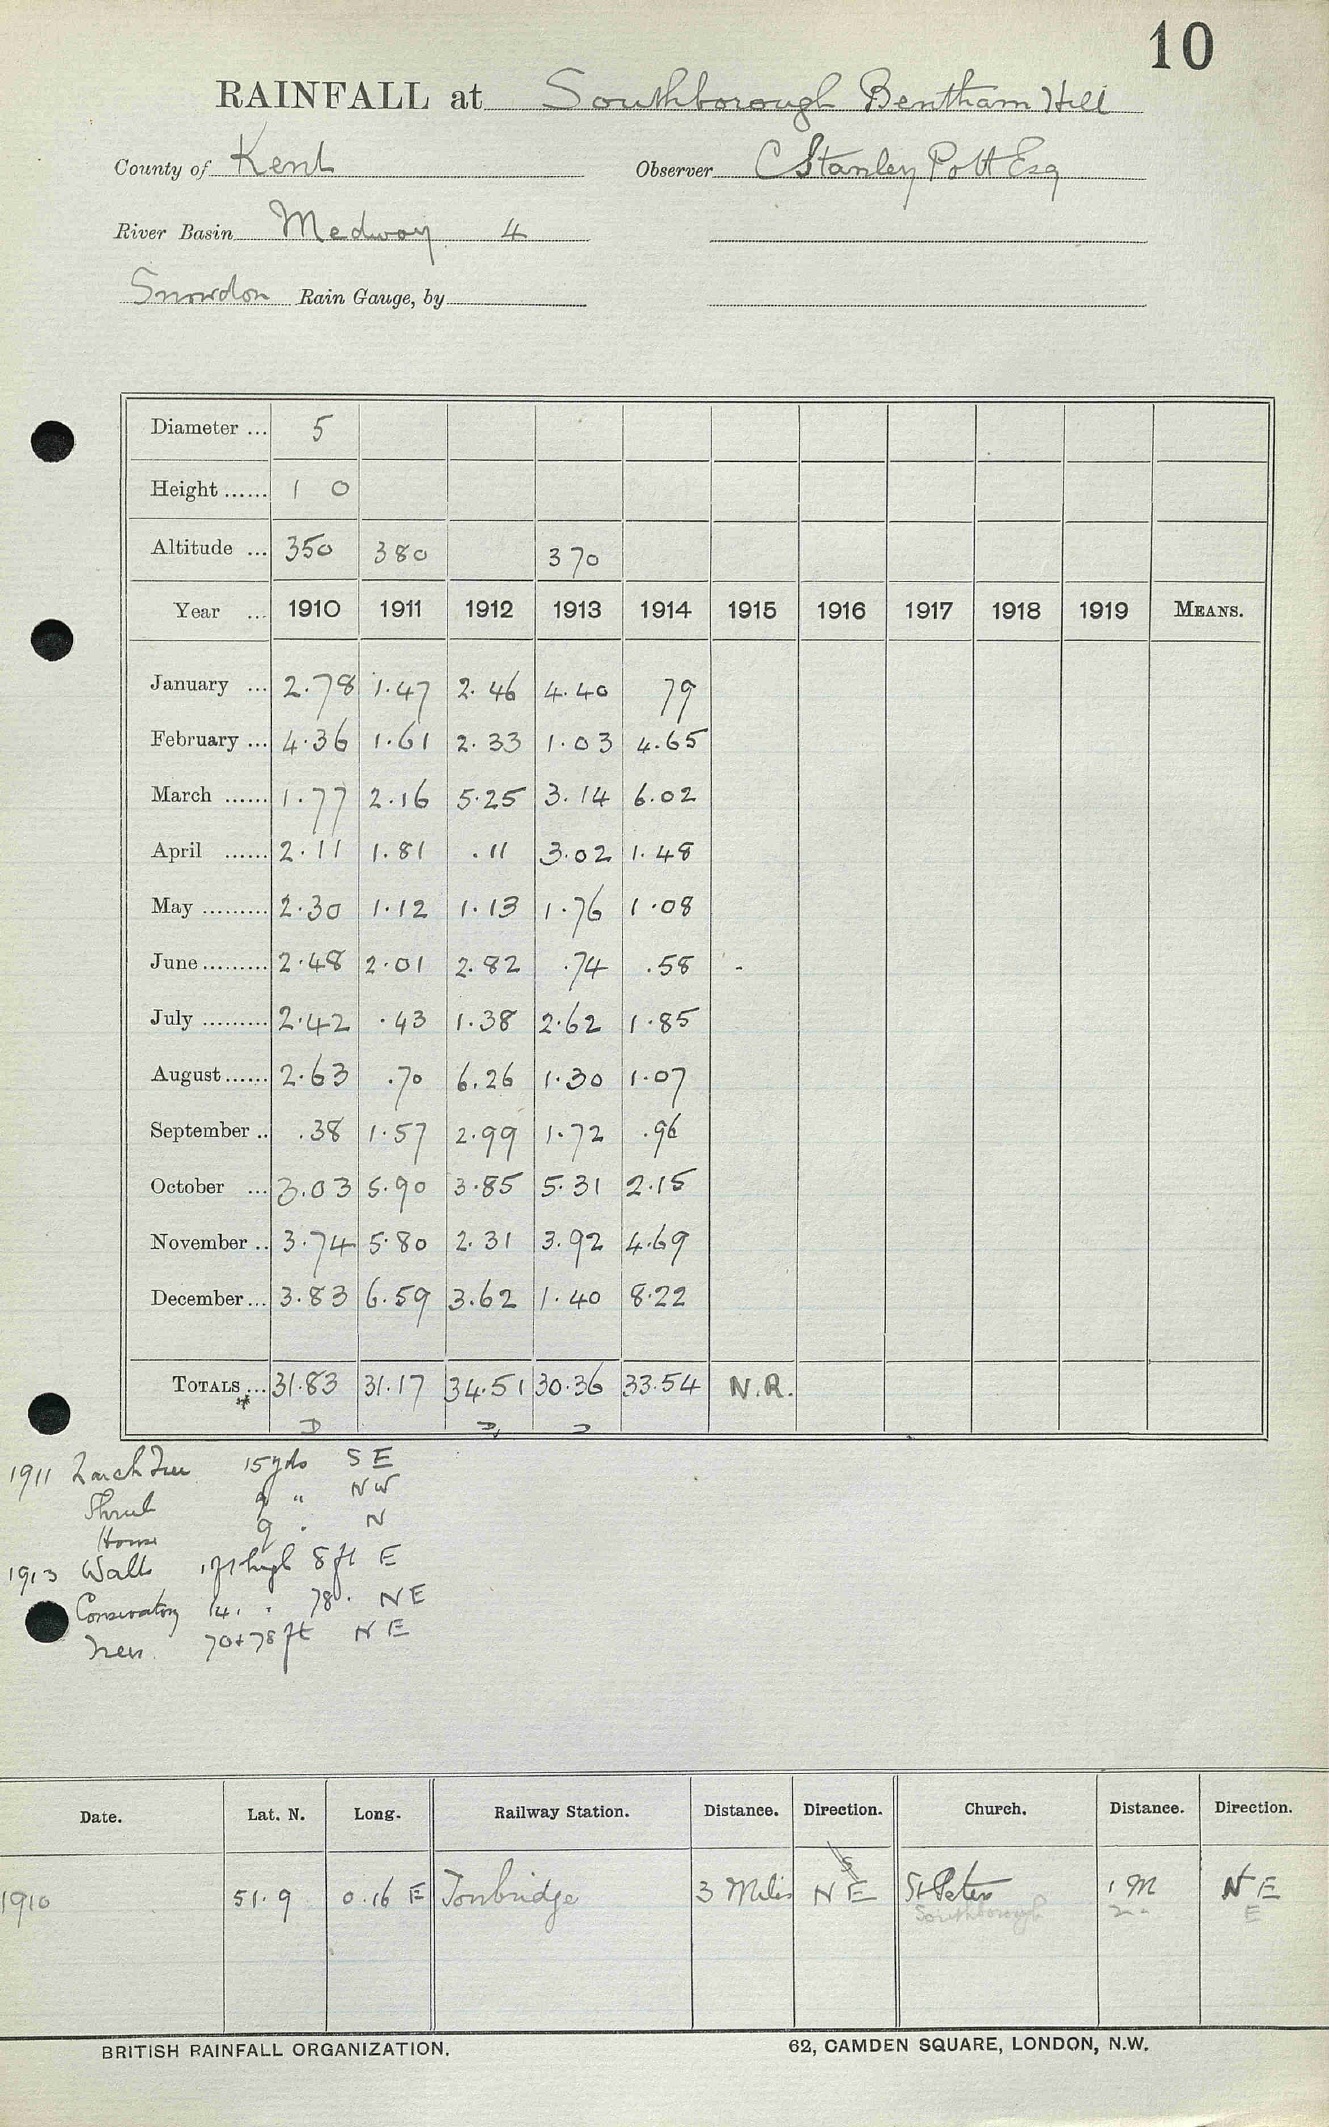 10
RAINFALL at Southborough Bentham Hill
County of Kent Observer C Stanley Pott Esq
River Basin Medway 4
Snowdon Rain Gauge, by
Diameter ... 5
Height ...... 1 0
Altitude ... 350 380 370
Year ... 1910 1911 1912 1913 1914 1915 1916 1917 1918 1919 MEANS.
January ... 2.78 1.47 2.46 4.40 79
February ... 4.36 1.61 2.33 1.03 4.65
March ...... 1.77 2.16 5.25 3.14 6.02
April ...... 2.11 1.81 .11 3.02 1.48
May ......... 2.30 1.12 1.13 1.76 1.08
June ......... 2.48 2.01 2.82 .74 .58
July ......... 2.42 .43 1.38 2.62 1.85
August ...... 2.63 .70 6.26 1.30 1.07
September .. .38 1.57 2.99 1.72 .96
October ... 3.03 5.90 3.85 5.31 2.15
November .. 3.74 5.80 2.31 3.92 4.69
December ... 3.83 6.59 3.62 1.40 8.22
TOTALS ... 31.83 31.17 34.51 30.36 33.54 N.R.
D D D
1911 Larch Tree 15 yds S E
Shrub 9 " N W
House 9 " N
1913 Walls 1 ft high 8 ft E
Conservatory 14 " 78 " N E
Trees 70 + 78 ft N E
Date. Lat. N. Long. Railway Station. Distance. Direction. Church. Distance. Direction.
1910 51.9 0.16 E Tonbridge 3 Miles N E St Peters 1 M N E
Southborough E
BRITISH RAINFALL ORGANIZATION. 62, CAMDEN SQUARE, LONDON, N.W.